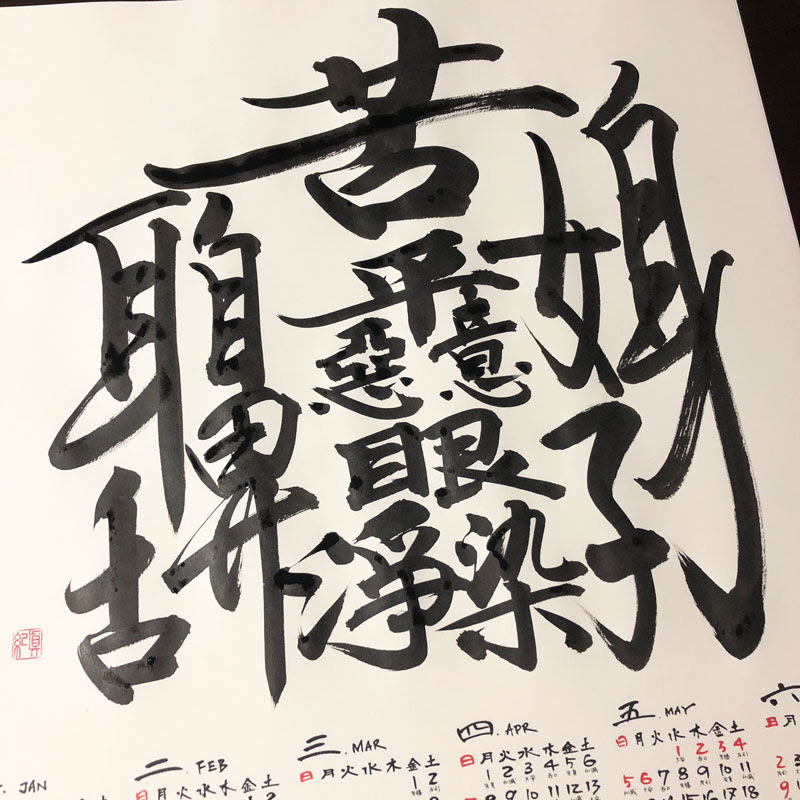 苦
身
好
平 意
惡
眼
淨 染
耳 鼻
舌
JAN
二. FEB
日 月 火 水 木 金 土
三. MAR
日 月 火 水 木 金 土
1 2
四. APR
日 月 火 水 木 金 土
1 2 3 4 5 6
8 9 10 11 12 13
五. MAY
日 月 火 水 木 金 土
1 2 3 4
5 6 7 8 9 10 11
13 14 15 16 17 18
六
日 月
2
9